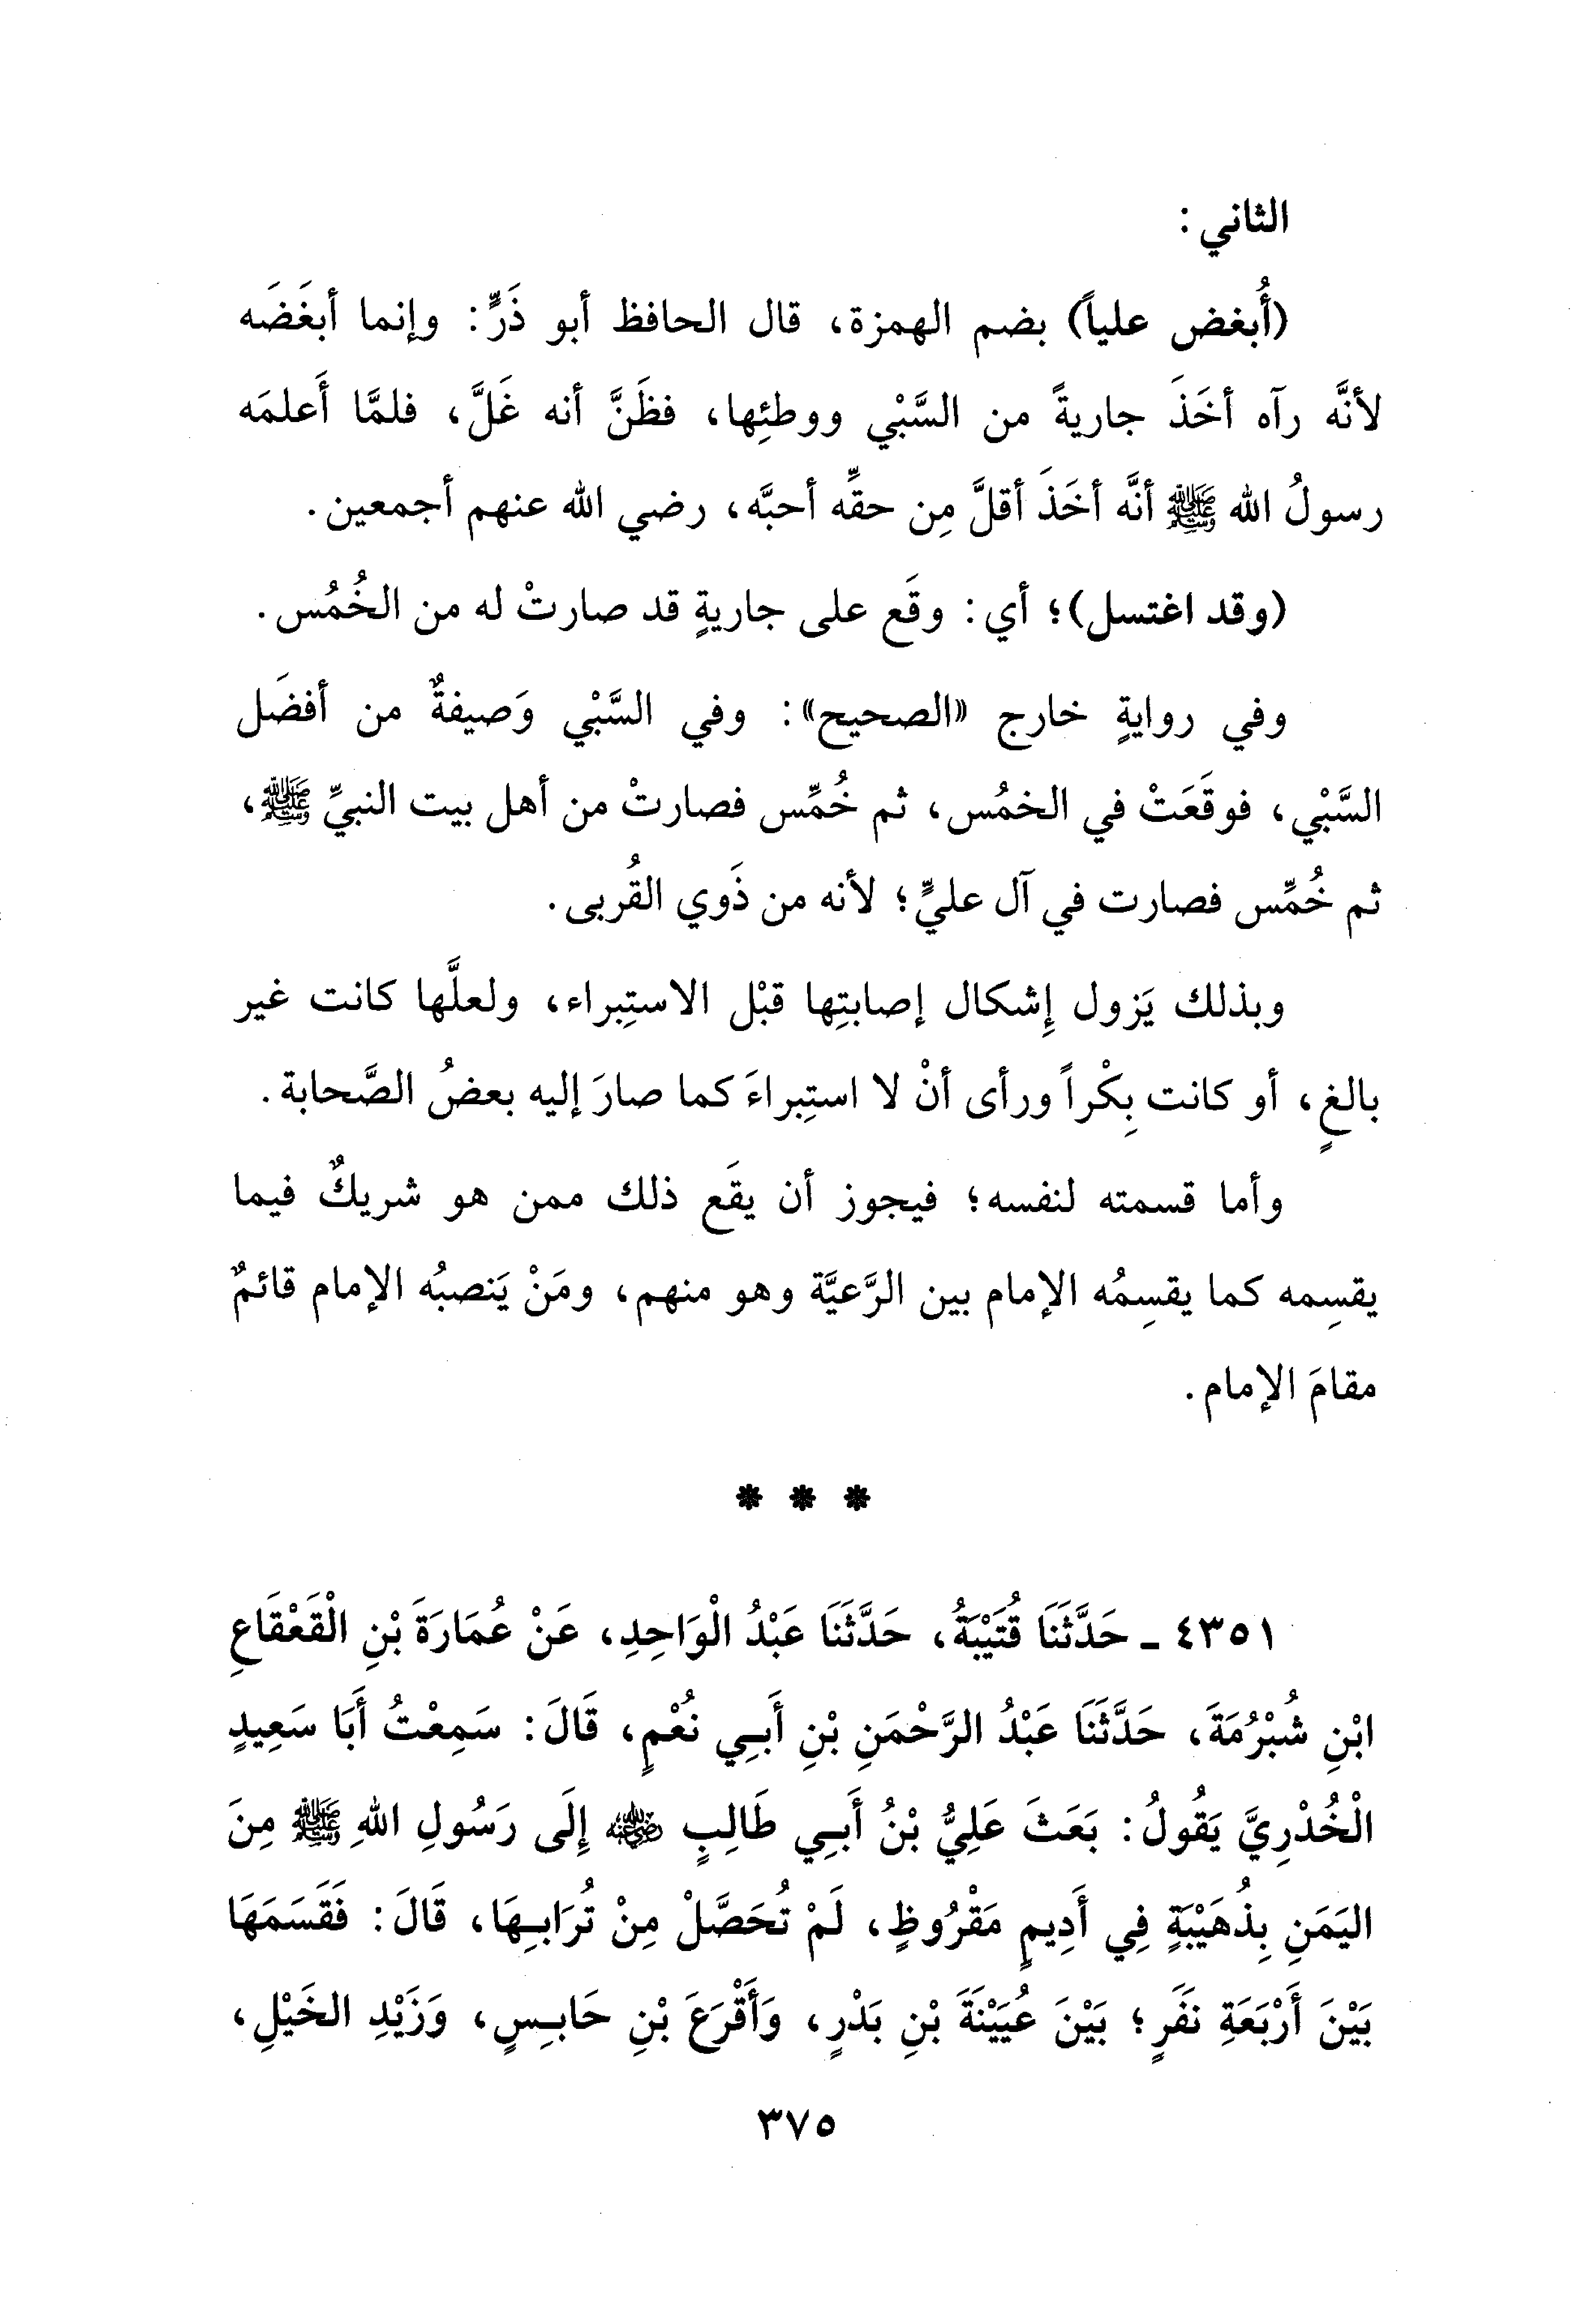 الثاني:
(أُبغض علياً) بضم الهمزة، قال الحافظ أبو ذَرٍّ: وإنما أبغَضَه
لأنَّه رآه أخَذَ جاريةً من السَّبْي ووطئِها، فظَنَّ أنه غَلَّ، فلمَّا أَعلمَه
رسولُ الله ﷺ أنَّه أخَذَ أقلَّ مِن حقِّه أحبَّه، رضي الله عنهم أجمعين.
(وقد اغتسل)؛ أي: وقَع على جاريةٍ قد صارتْ له من الخُمُس.
وفي روايةٍ خارج «الصحيح»: وفي السَّبْي وَصيفةٌ من أفضَل
السَّبْي، فوقَعَتْ في الخمُس، ثم خُمِّس فصارتْ من أهل بيت النبيِّ ﷺ،
ثم خُمِّس فصارت في آل عليٍّ؛ لأنه من ذَوي القُربى.
وبذلك يَزول إِشكال إصابتِها قبْل الاستِبراء، ولعلَّها كانت غير
بالغٍ، أو كانت بِكْراً ورأى أنْ لا استِبراءَ كما صارَ إليه بعضُ الصَّحابة.
وأما قسمته لنفسه؛ فيجوز أن يقَع ذلك ممن هو شريكٌ فيما
يقسِمه كما يقسِمُه الإمام بين الرَّعيَّة وهو منهم، ومَنْ يَنصبُه الإمام قائمٌ
مقامَ الإمام.
* * *
٤٣٥١ ـ حَدَّثَنَا قُتَيْبَةُ، حَدَّثَنَا عَبْدُ الْوَاحِدِ، عَنْ عُمَارَةَ بْنِ الْقَعْقَاعِ
ابْنِ شُبْرُمَةَ، حَدَّثَنَا عَبْدُ الرَّحْمَنِ بْنِ أَبِي نُعْمٍ، قَالَ: سَمِعْتُ أَبَا سَعِيدٍ
الْخُدْرِيَّ يَقُولُ: بَعَثَ عَلِيُّ بْنُ أَبِي طَالِبٍ ﵁ إِلَى رَسُولِ اللهِ ﷺ مِنَ
اليَمَنِ بِذُهَيْبَةٍ فِي أَدِيمٍ مَقْرُوظٍ، لَمْ تُحَصَّلْ مِنْ تُرَابِهَا، قَالَ: فَقَسَمَهَا
بَيْنَ أَرْبَعَةِ نَفَرٍ؛ بَيْنَ عُيَيْنَةَ بْنِ بَدْرٍ، وَأَقْرَعَ بْنِ حَابِسٍ، وَزَيْدِ الخَيْلِ،
٣٧٥